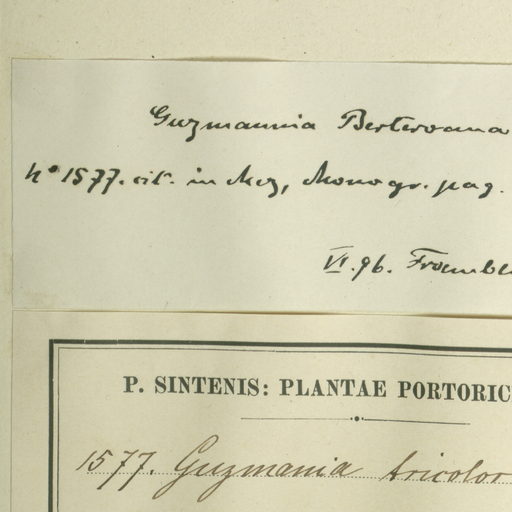 Guzmannia Berteroana
No 1577. cit. in Mez, Monogr. pag.
VI. 96. Froembl
P. SINTENIS: PLANTAE PORTORIC
1577. Guzmania tricolor